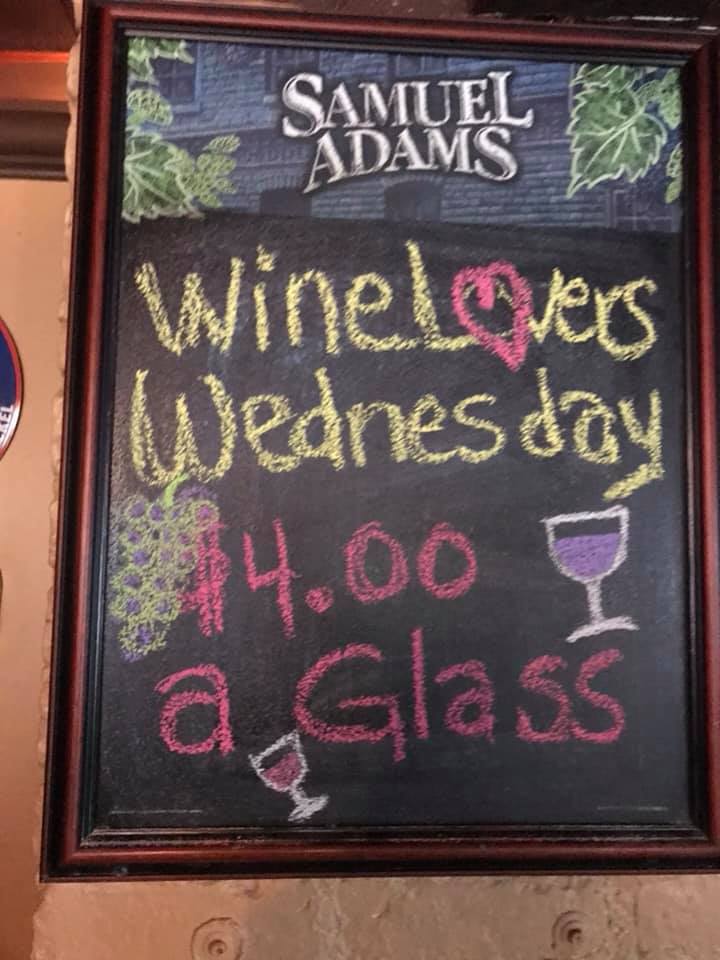 SAMUEL
ADAMS
Wine Lovers
Wednesday
$4.00
a Glass